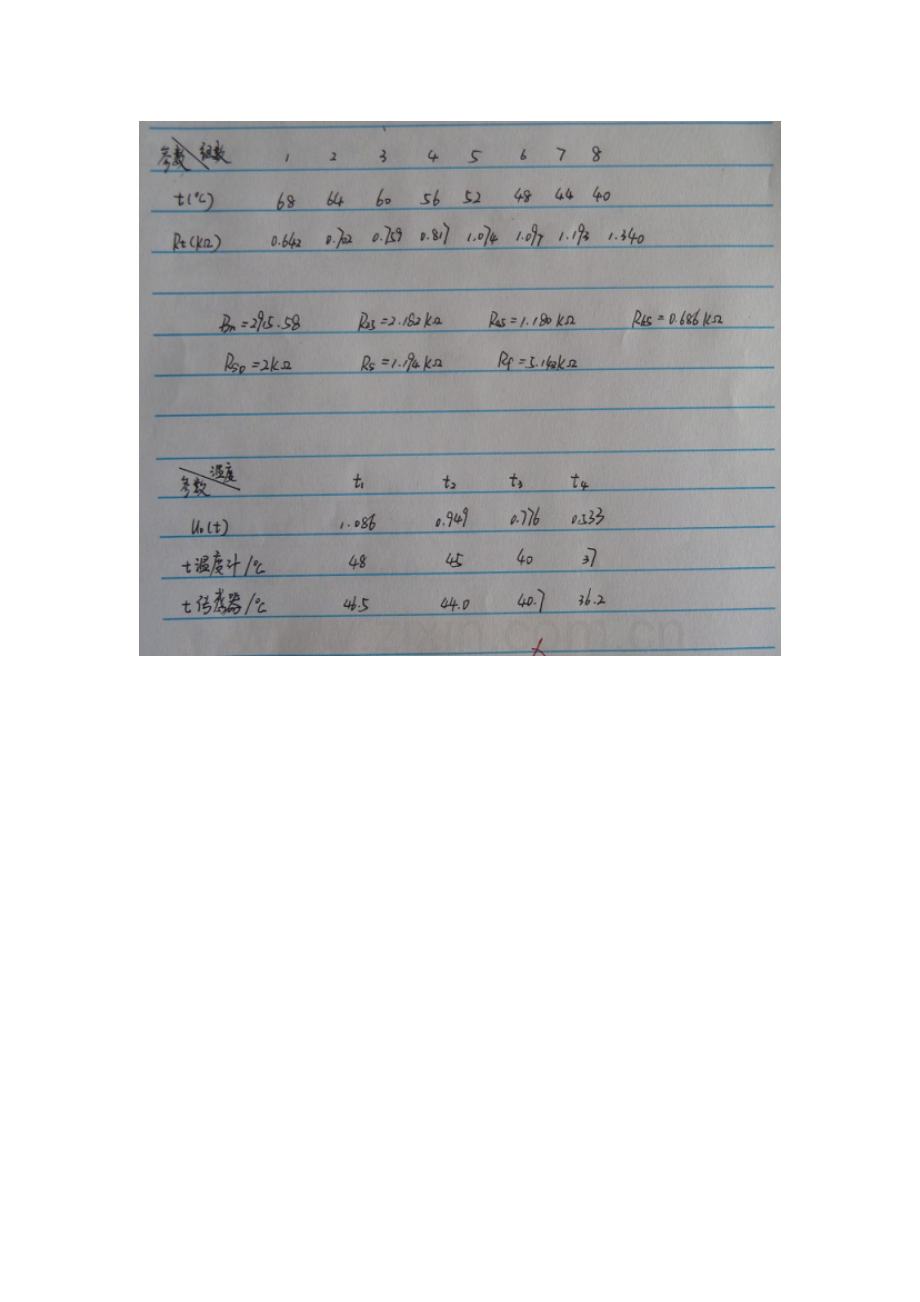 参数 组数 1 2 3 4 5 6 7 8
t(℃) 68 64 60 56 52 48 44 40
Rt(KΩ) 0.642 0.702 0.759 0.817 1.074 1.097 1.193 1.340
Bn=2915.58 R25=2.182KΩ R45=1.180KΩ R65=0.686KΩ
=2KΩ Rs=1.194KΩ Rf=5.142KΩ
参数 温度 t₁ t₂ t₃ t₄
U₀(t) 1.086 0.949 0.776 0.533
t温度计/℃ 48 45 40 37
t传感器/℃ 46.5 44.0 40.7 36.2
www.zixin.com.cn